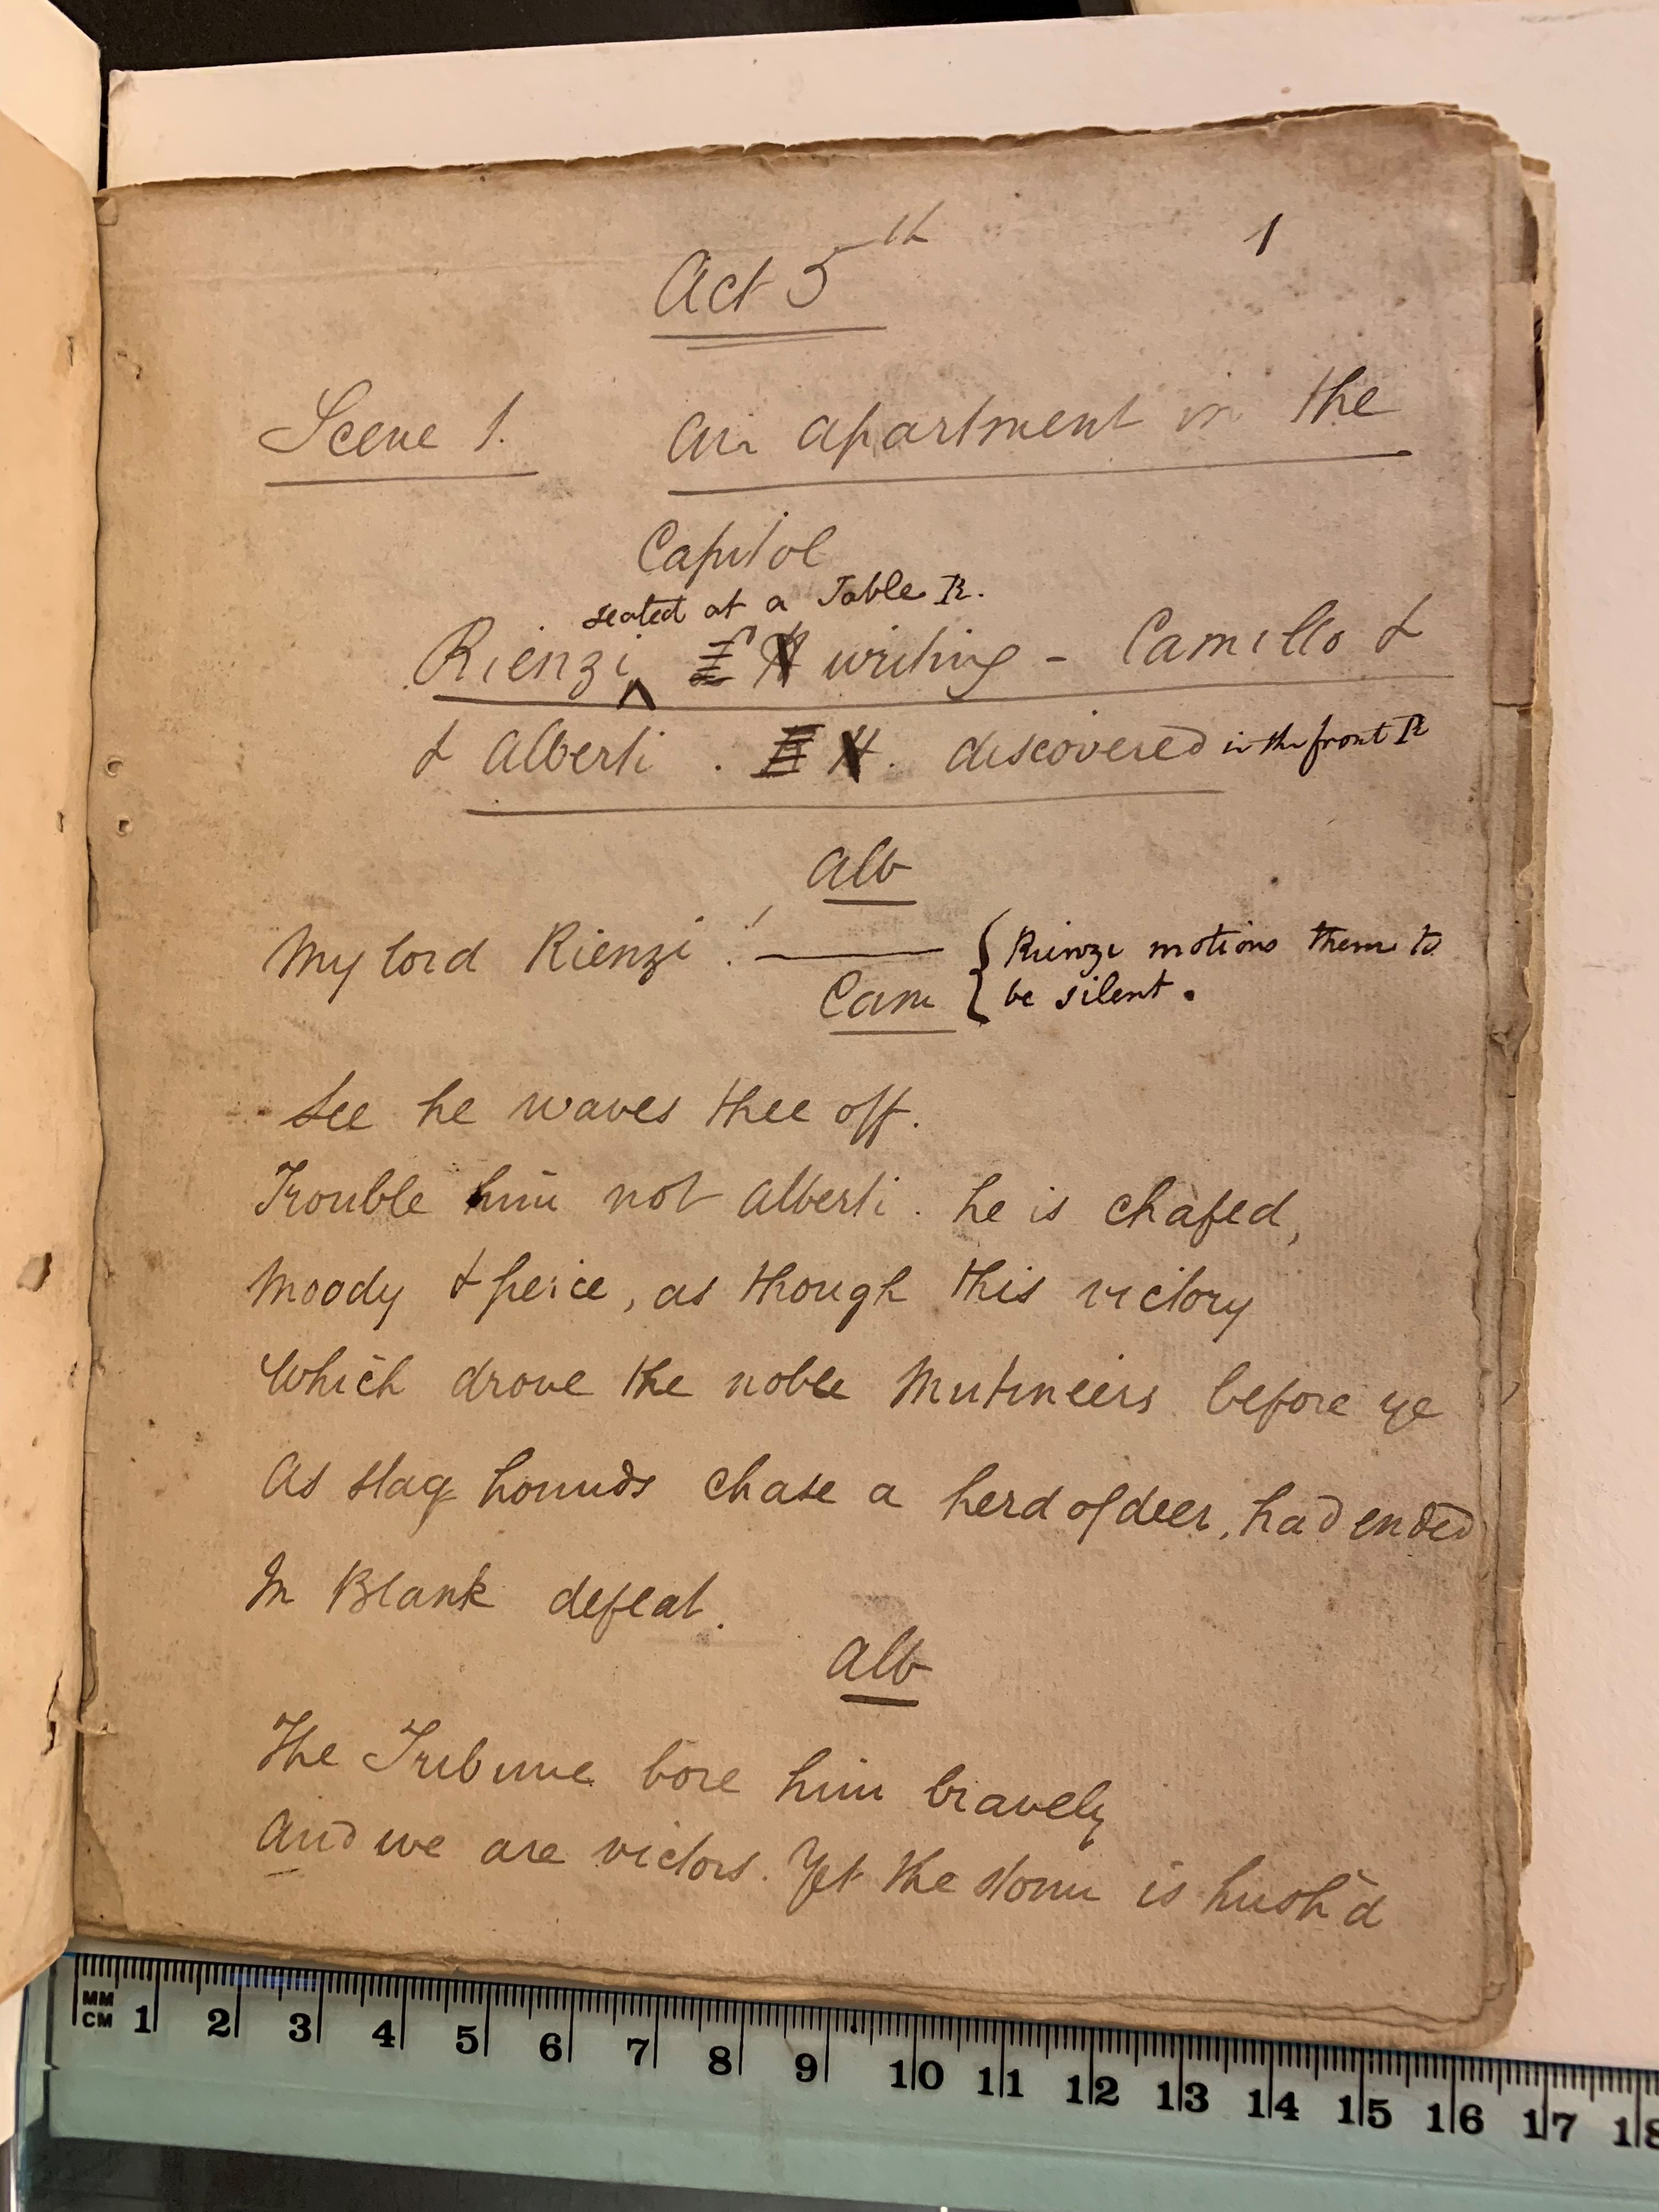 Act 5th
1
Scene 1. An apartment in the
Capitol
seated at a Table R.
Rienzi writing - Camillo &
& Alberti . discovered in the front R
Alb
My lord Rienzi ! —
{ Rienzi motions them to
be silent.
Cam
See he waves thee off.
Trouble him not Alberti. he is chafed,
Moody & feirce, as though this victory
Which drove the noble Mutineers before ye
As stag hounds chase a herd of deer, had ended
In Blank defeat.
Alb
The Tribune bore him bravely
And we are victors. Yet the storm is hush'd
MM
CM 1 2 3 4 5 6 7 8 9 10 11 12 13 14 15 16 17 18